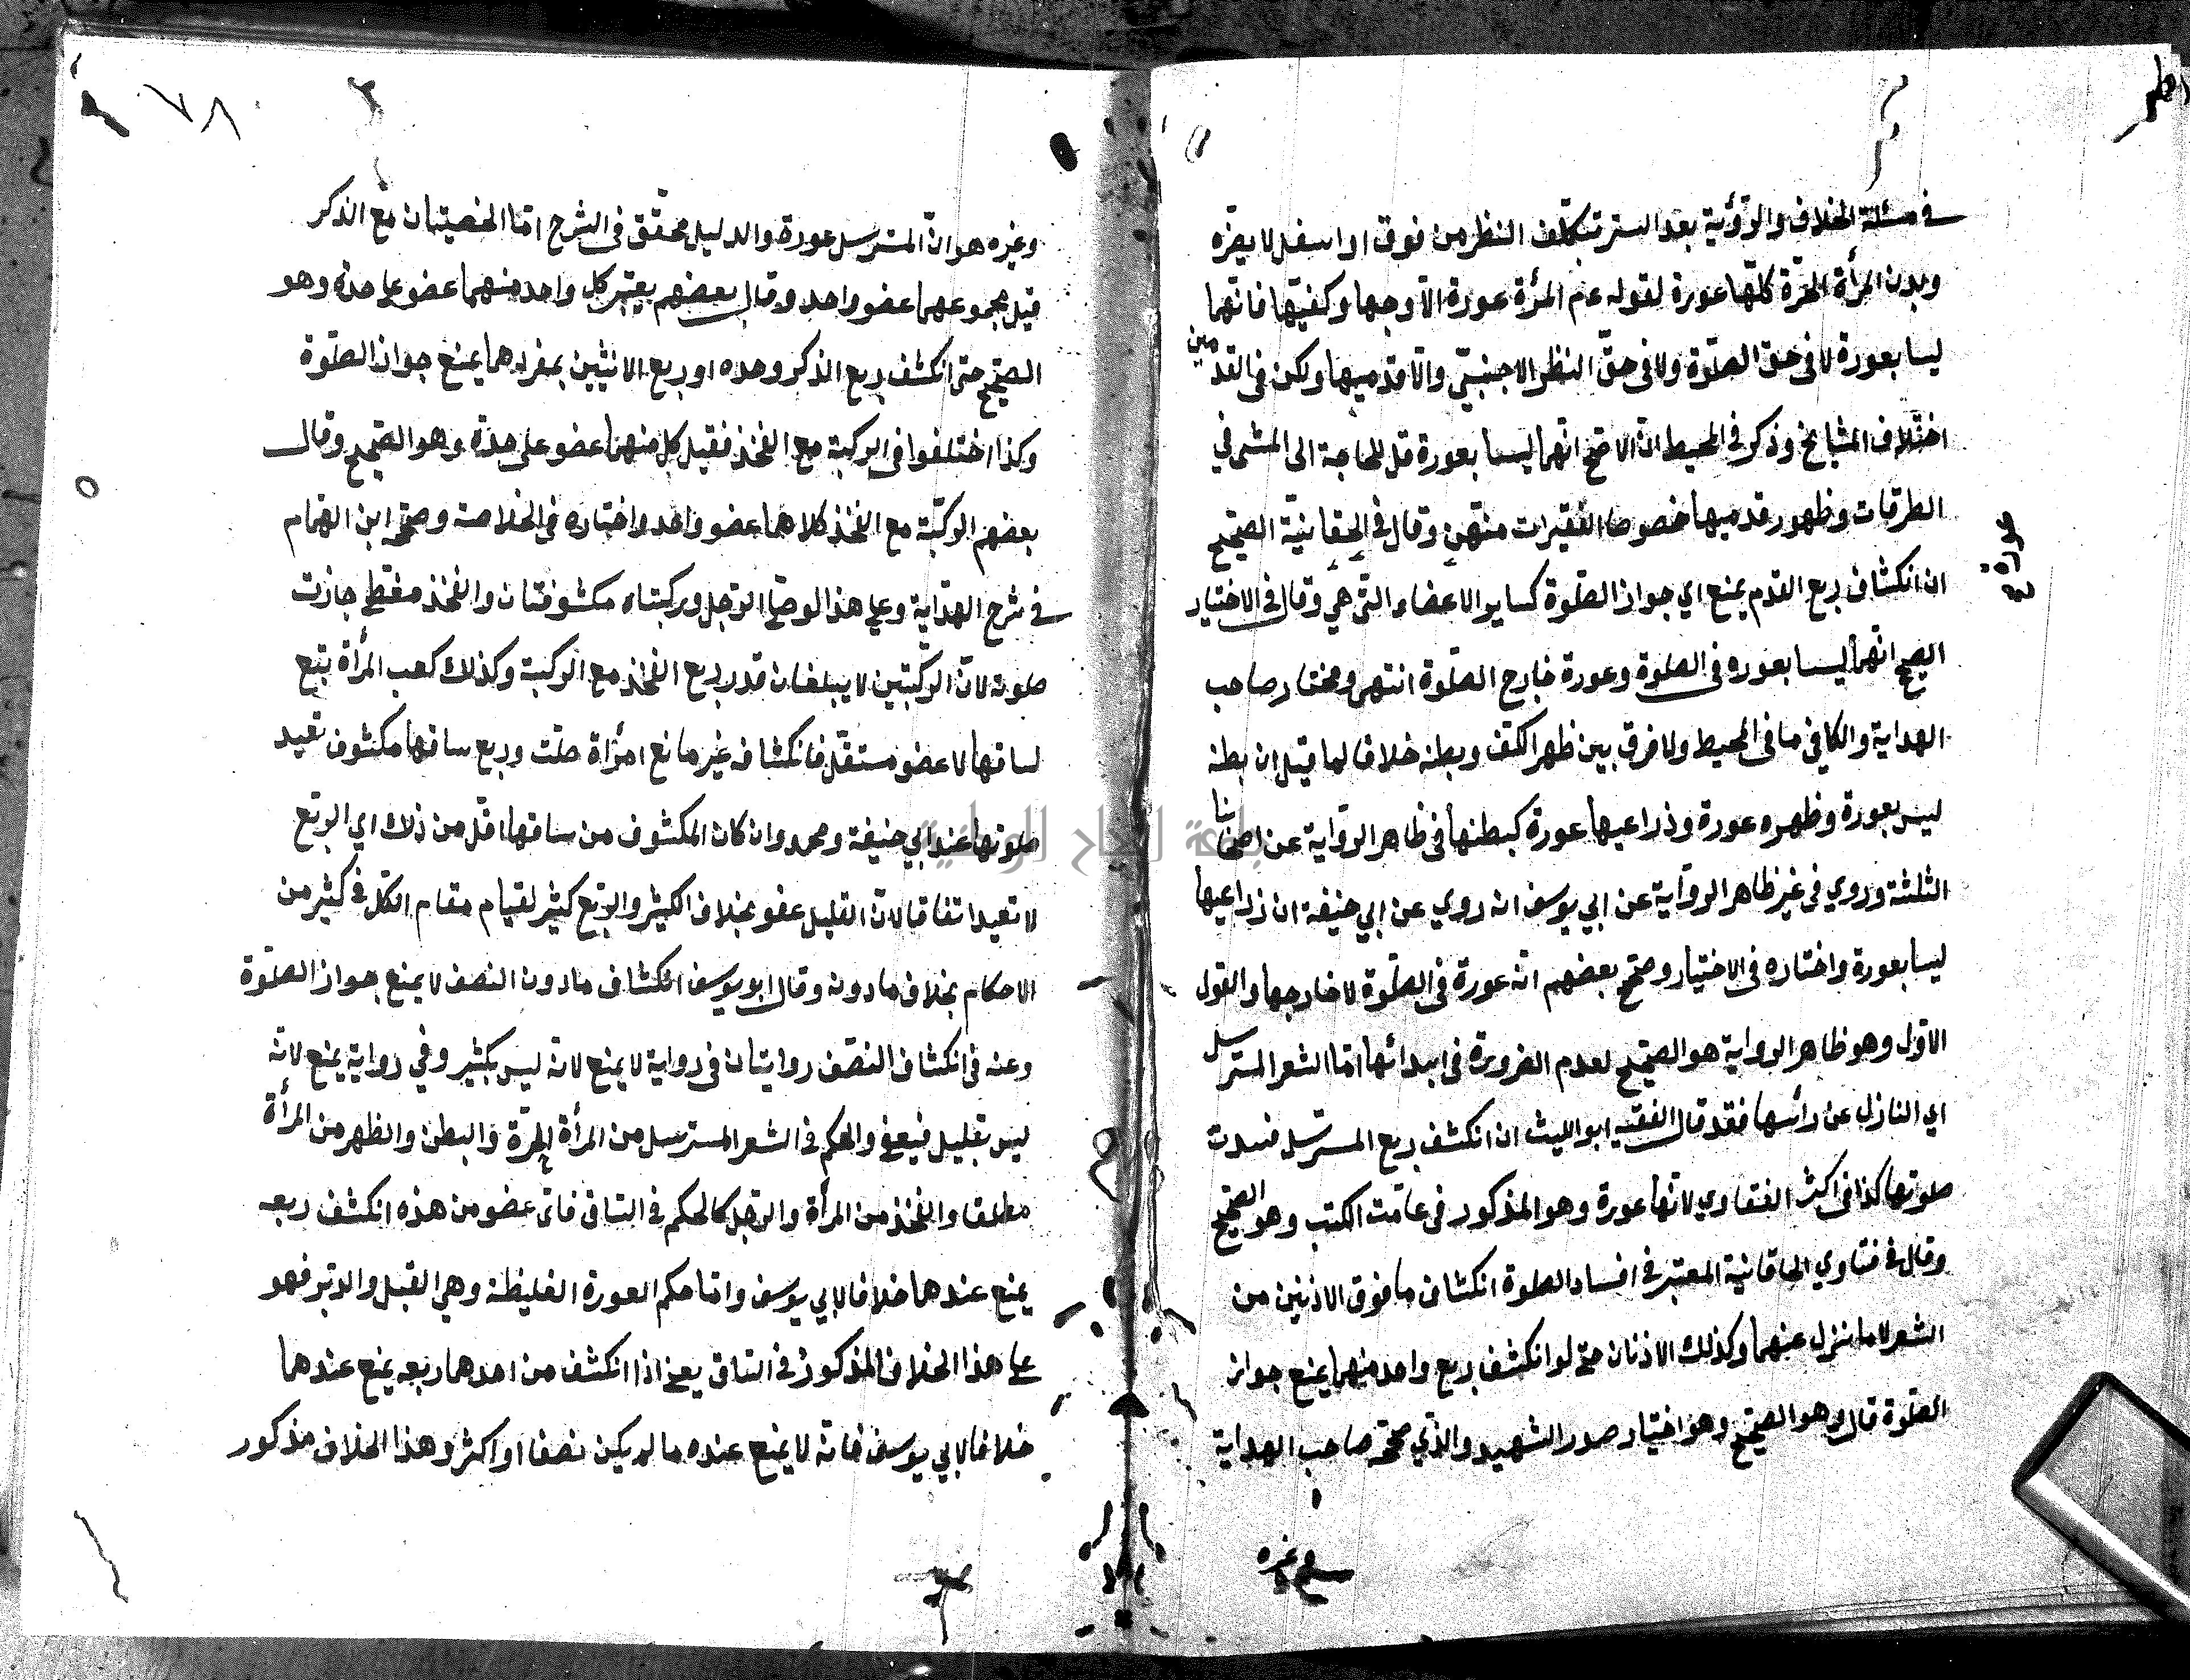 في مسئلة الخلاف والرؤية بعد الستر بتكلف النظر من فوق او اسفل لا يضره
وبدن المرأة الحرة كلها عورة لقوله عم المرأة عورة الا وجهها وكفيها فانهما
ليسا بعورة لا في حق الصلوة ولا في حق النظر الاجنبي والا قدميها ولكن في القدمين
اختلاف المشايخ وذكر في المحيط ان الاصح انهما ليسا بعورة قل للحاجة الى المشي في
الطرقات وظهور قدميها خصوصا الفقيرات منهن وقال في الحقانية الصحيح
ان انكشاف ربع القدم يمنع اي جواز الصلوة كساير الاعضاء التي هي وقال في الاختيار
الصحيح انهما ليسا بعوره في الصلوة وعورة خارج الصلوة انتهى ومختار صاحب
الهداية والكافي ما في المحيط ولا فرق بين ظهر الكف وبطنه خلافا لما قيل ان بطنه
ليس بعورة وظهره عورة وذراعيها عورة كبطنها في ظاهر الرواية عن اصحابنا
الثلثة وروي في غير ظاهر الرواية عن ابي يوسف انه روي عن ابي حنيفة ان ذراعيها
ليسا بعورة واختاره في الاختيار وصحح بعضهم انه عورة في الصلوة لا خارجها والقول
الاول وهو ظاهر الرواية هو الصحيح لعدم الضرورة في ابدائها اما الشعر المسترسل
اي النازل عن رأسها فقد قال الفقيه ابو الليث ان انكشف ربع المسترسل فسدت
صلوتها كذا في اكثر الفتاوي لانها عورة وهو المذكور في عامة الكتب وهو الصحيح
وقال في فتاوي الخاقانية المعتبر في افساد الصلوة انكشاف ما فوق الاذنين من
الشعر لا ما نزل عنهما وكذلك الاذنان حتى لو انكشف ربع واحد منهما يمنع جواز
الصلوة قال وهو الصحيح وهو اختيار صدر الشهيد والذي صححه صاحب الهداية
وغيره
٧٨
وغيره هو ان المسترسل عورة والدليل محقق في الشرح اما الخصيتان مع الذكر
قيل مجموعهما عضو واحد وقال بعضهم يعتبر كل واحد منهما عضو على حدة وهو
الصحيح حتى انكشف ربع الذكر وحده او ربع الانثيين بمفردهما يمنع جواز الصلوة
وكذا اختلفوا في الركبة مع الفخذ فقيل كل منهما عضو على حدة وهو الصحيح وقال
بعضهم الركبة مع الفخذ كلاهما عضو واحد واختاره في الخلاصة وصححه ابن الهمام
في شرح الهداية وعلى هذا لو صلى الرجل وركبتاه مكشوفتان والفخذ مغطى جازت
صلوته لان الركبتين لا يبلغان قدر ربع الفخذ مع الركبة وكذلك كعب المرأة تبع
لساقها لا عضو مستقل فانكشافه غير مانع امرأة صلت وربع ساقها مكشوف تعيد
صلوتها عند ابي حنيفة ومحمد وان كان المكشوف من ساقها اقل من ذلك اي الربع
لا تعيد اتفاقا لان القليل عفو بخلاف الكثير والربع كثير لقيام مقام الكل في كثير من
الاحكام بخلاف ما دونه وقال ابو يوسف انكشاف ما دون النصف لا يمنع جواز الصلوة
وعنه في انكشاف النصف روايتان في رواية لا يمنع لانه ليس بكثير وفي رواية يمنع لانه
ليس بقليل فيعفى والحكم في الشعر المسترسل من المرأة الحرة والبطن والظهر من المرأة
مطلقا والفخذ من المرأة والرجل كالحكم في الساق فاي عضو من هذه انكشف ربعه
يمنع عندهما خلافا لابي يوسف واما حكم العورة الغليظة وهي القبل والدبر فهو
على هذا الخلاف المذكور في الساق يعني اذا انكشف من احدهما ربعه يمنع عندهما
خلافا لابي يوسف فانه لا يمنع عنده ما لم يكن نصفا او اكثر وهذا الخلاف مذكور
جامعة النجاح الوطنية